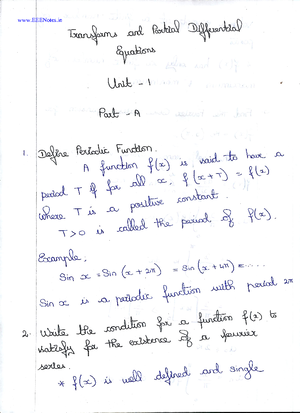 www.EEENotes.in
Transforms and Partial Differential
Equations
Unit - 1
Part - A
1. Define Periodic Function.
A function f(x) is said to have a
period T if for all x, f(x+T) = f(x)
where T is a positive constant.
T>0 is called the period of f(x).
Example:
Sin x = Sin (x + 2π) = Sin (x + 4π) = .....
Sin x is a periodic function with period 2π
2. Write the condition for a function f(x) to
satisfy for the existence of a fourier
series.
* f(x) is well defined and single